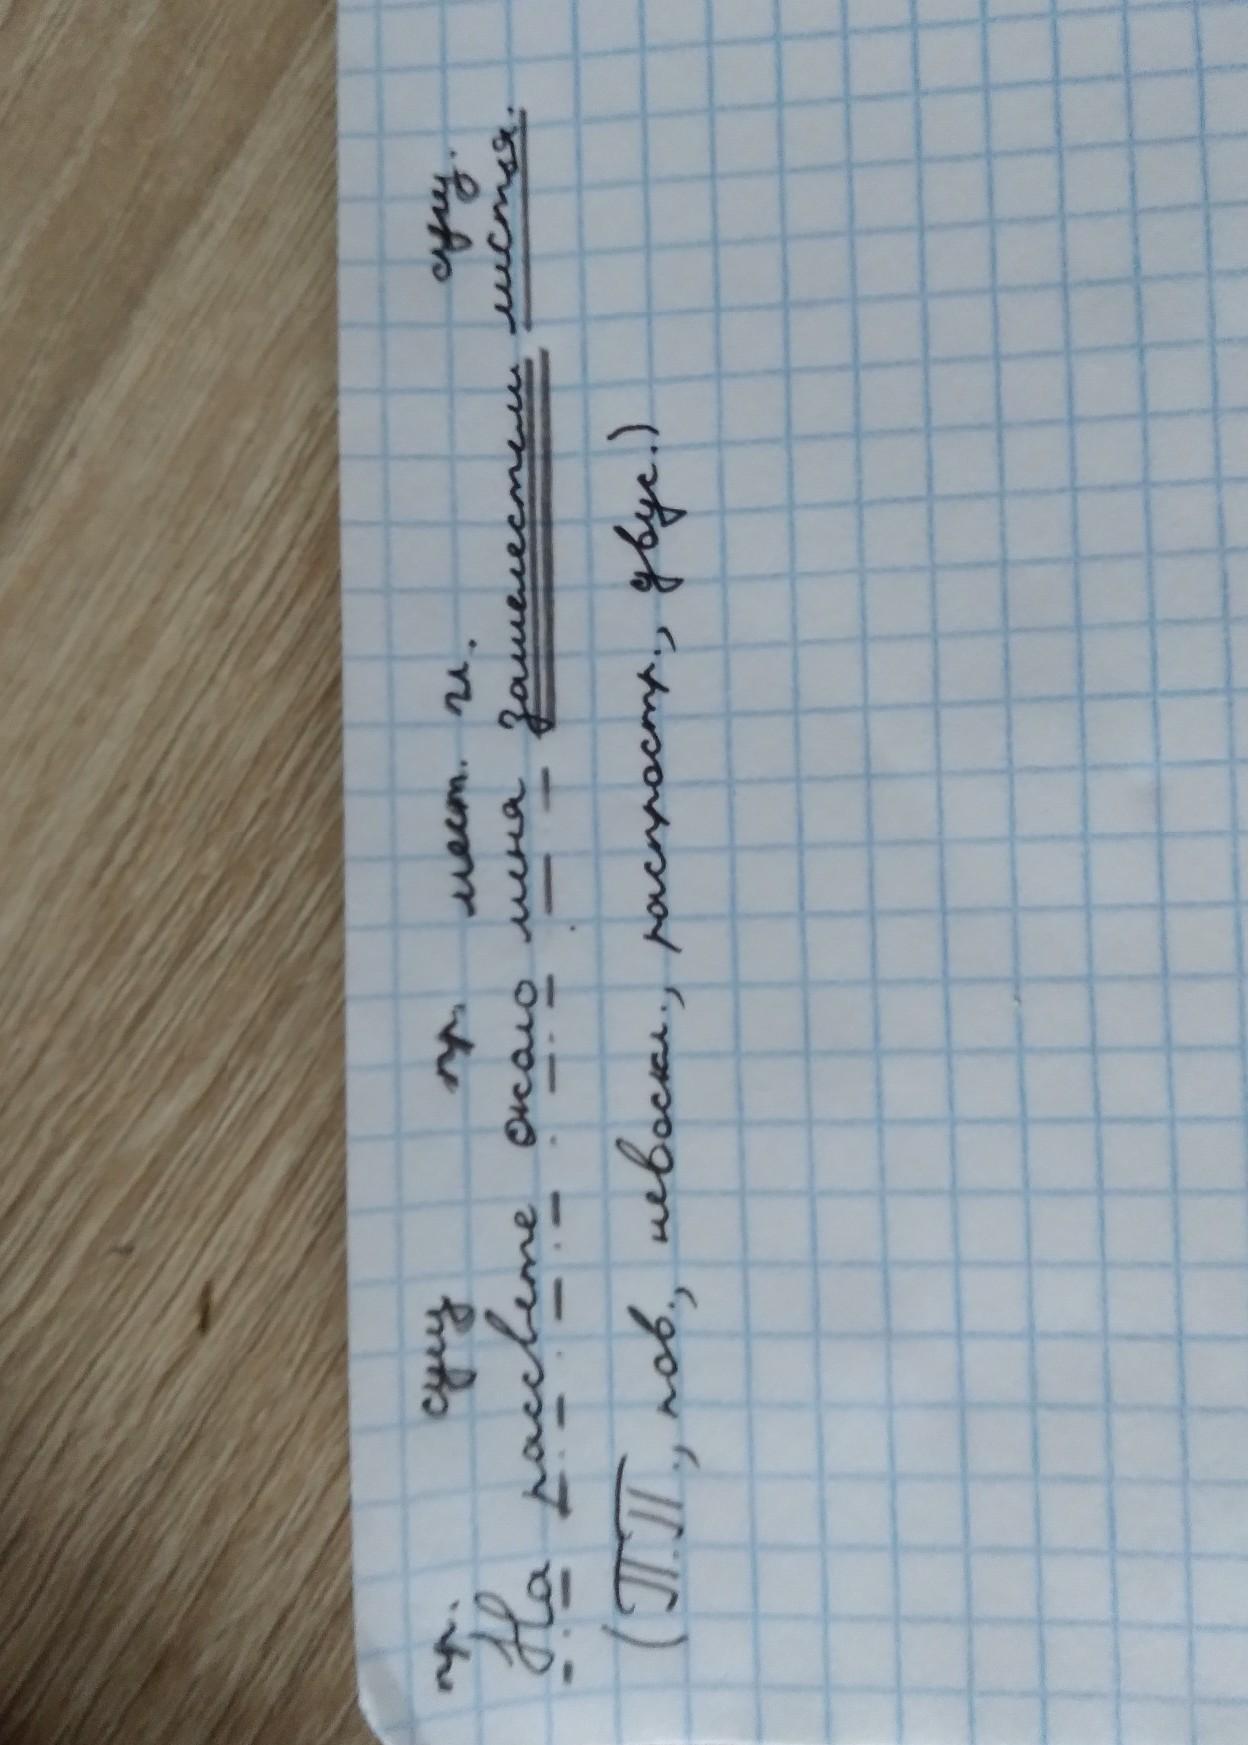 пр. сущ пр. мест. гл. сущ.
На рассвете около меня зашелестели листья.
(П.П., пов., невоскл., распростр., двус.)